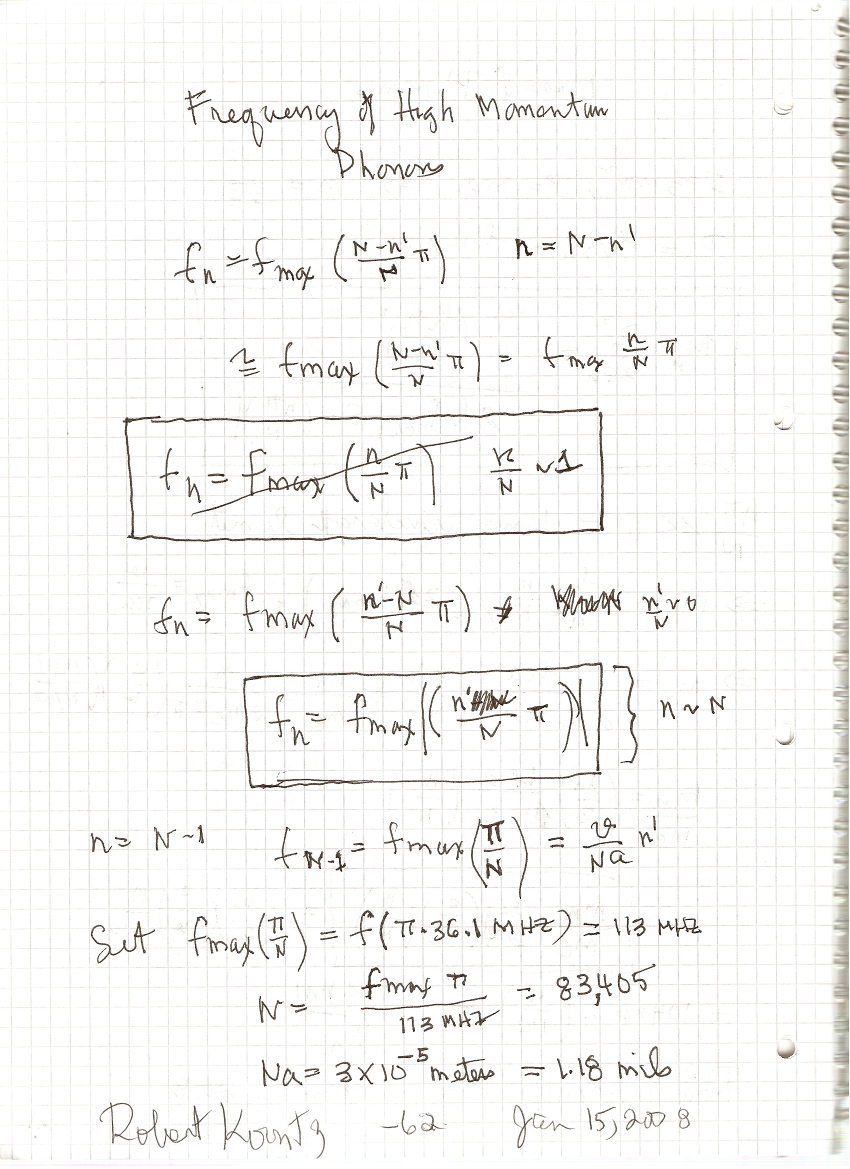 Frequency of High Momentum
Phonons
fn = fmax (N-n'/N π) n = N-n'
≅ fmax (N-n'/N π) = fmax n/N π
fn = fmax (n/N π) n/N ~ 1
fn = fmax (n'-N/N π) n'/N ~ 0
fn = fmax |(n'/N π)| } n ~ N
n = N-1 fN-1 = fmax (π/N) = v/Na n'
Set fmax (π/N) = f(π·36.1 MHZ) = 113 MHZ
N = fmax π / 113 MHZ = 83,405
Na = 3×10⁻⁵ meters = 1.18 mils
Robert Koontz -62 Jan 15, 2008